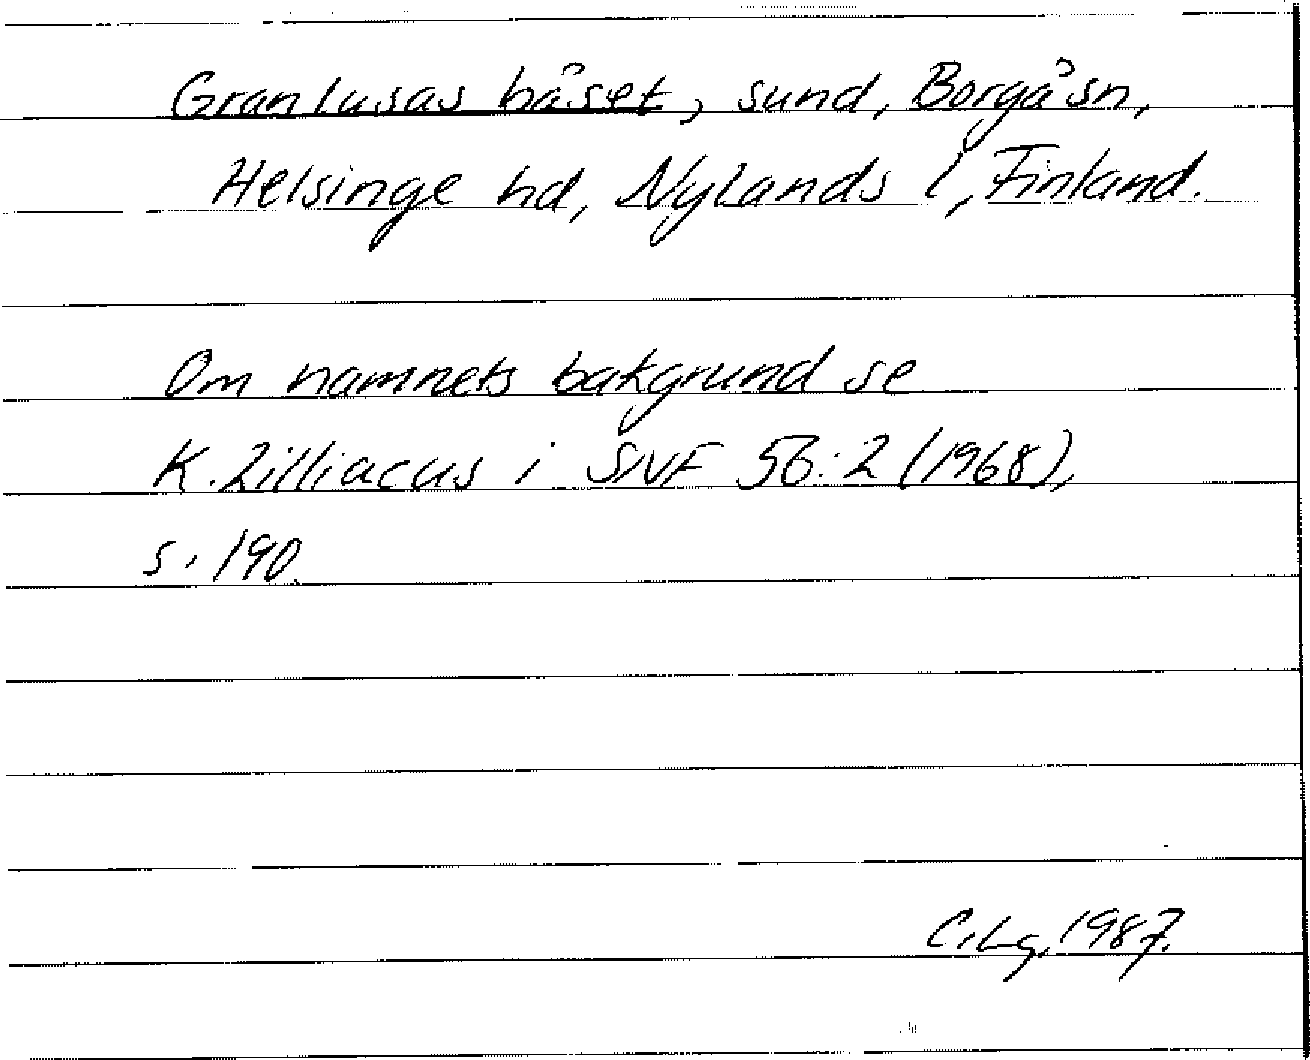 Granlusas båset, sund, Borgå sn,
Helsinge hd, Nylands l, Finland.
Om namnets bakgrund se
K. Zilliacus i SNF 56:2 (1968),
s. 190.
C.Lg, 1987.